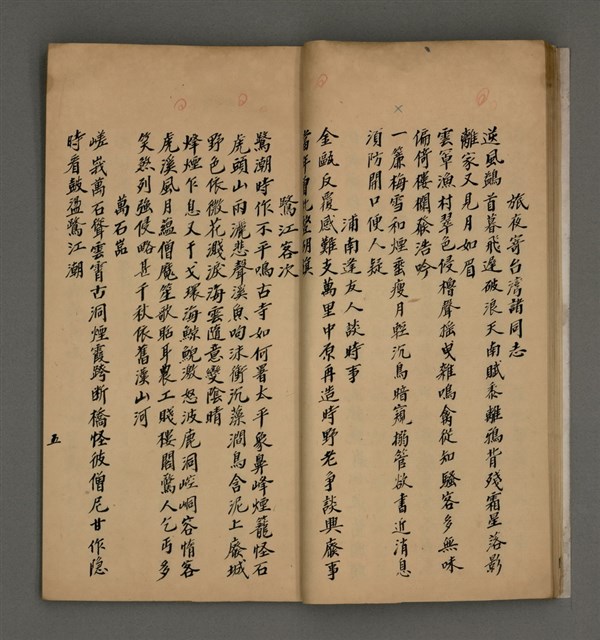 旅夜寄台湾諸同志
逆風鷁首暮飛邊破浪天南賦黍離鴉背殘霜星落影
離家又見月如眉
雲窂漁村翠色侵櫓聲搖曳雜鳴禽從知騷客多無味
偏倚樓欄發浩吟
一簾梅雪和煙蚕瘦月輕沉鳥暗窺搦管欲書近消息
須防開口便人疑
浦南逢友人談時事
金甌反覆感難支萬里中原再造時野老爭談興廢事
當年曾
鷺江客次
驚潮時作不平鳴古寺如何署太平象鼻峰煙籠怪石
虎頭山雨灑悲聲溪魚呴沫衝沉藻澗鳥含泥上廢城
野色依微花濺淚海雲隨意變陰晴
烽煙乍息又干戈環海鯨鯢激怒波鹿洞崆峒容惰客
虎溪風月蘊僧魔笙歌聒耳農工賤樓閣驚人乞丐多
笑煞列強侵略甚千秋依舊漢山河
萬石嵓
嵯峩萬石聳雲霄古洞煙霞跨断橋怪彼僧尼甘作隐
時看皷盪鷺江潮
五